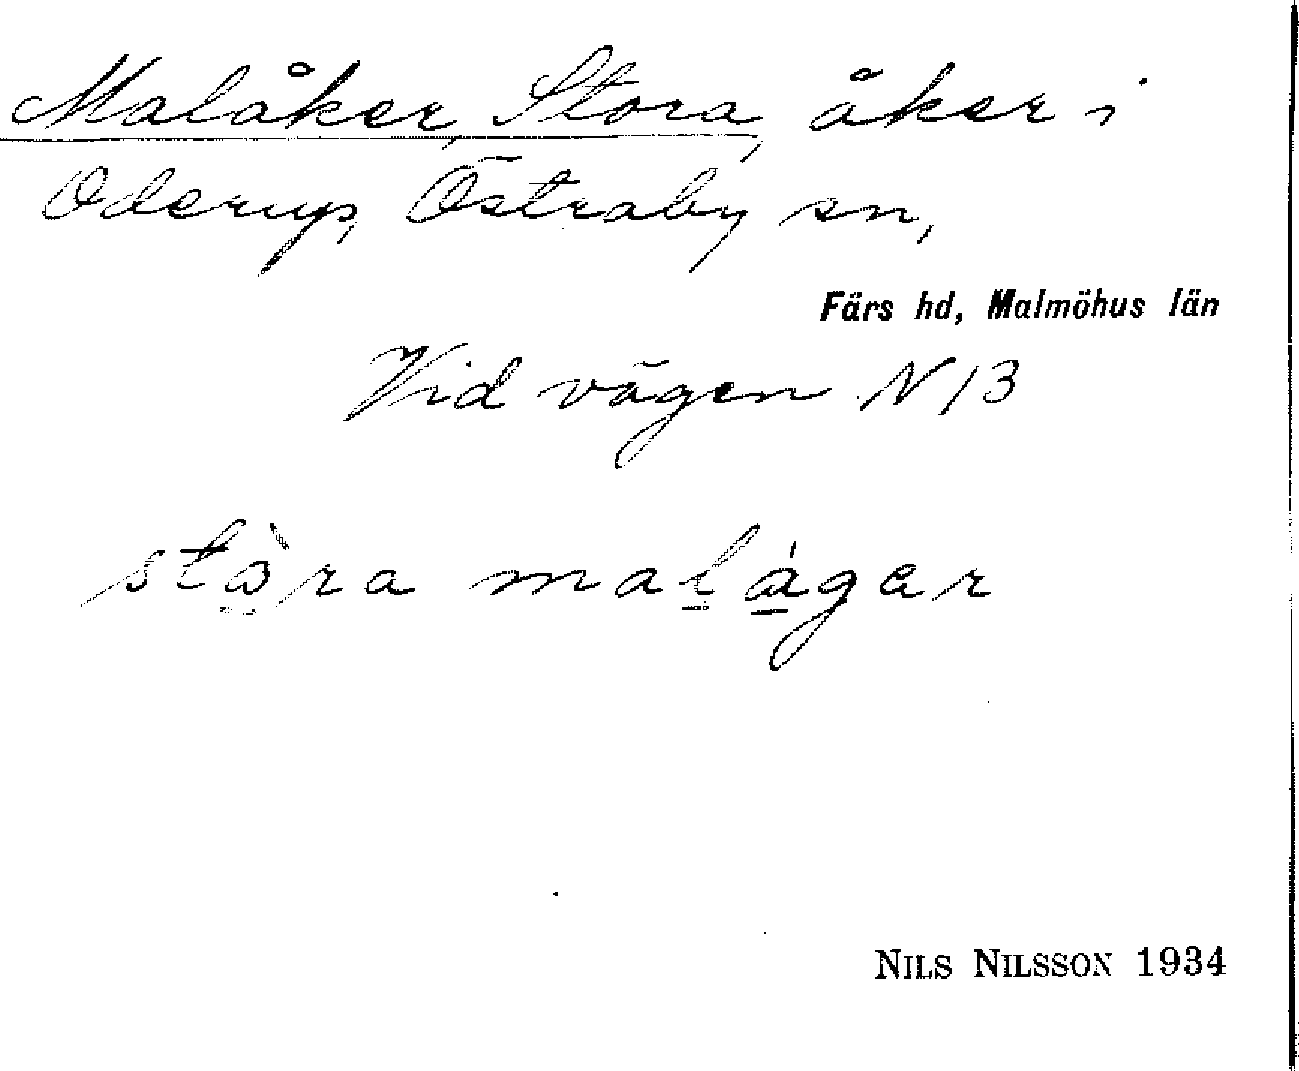 Malåker, Stora, åker i
Oderup, Östraby sn,
Färs hd, Malmöhus län
Vid vägen N 13
stòra malágar
NILS NILSSON 1934